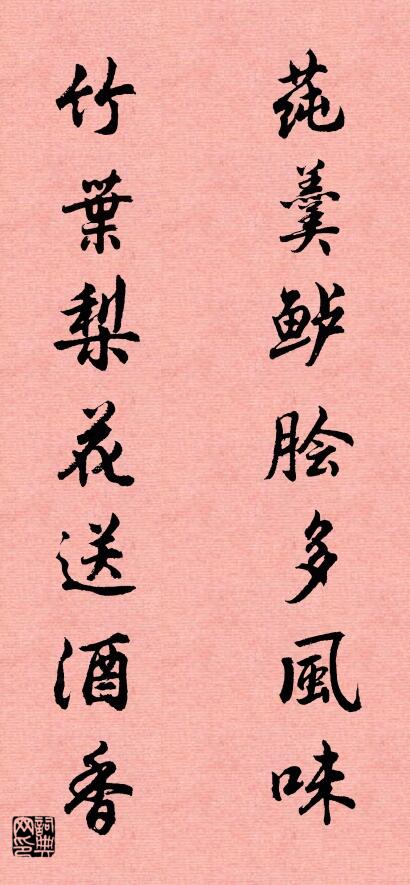 莼羹鲈脍多風味
竹葉梨花送酒香
詞典网印